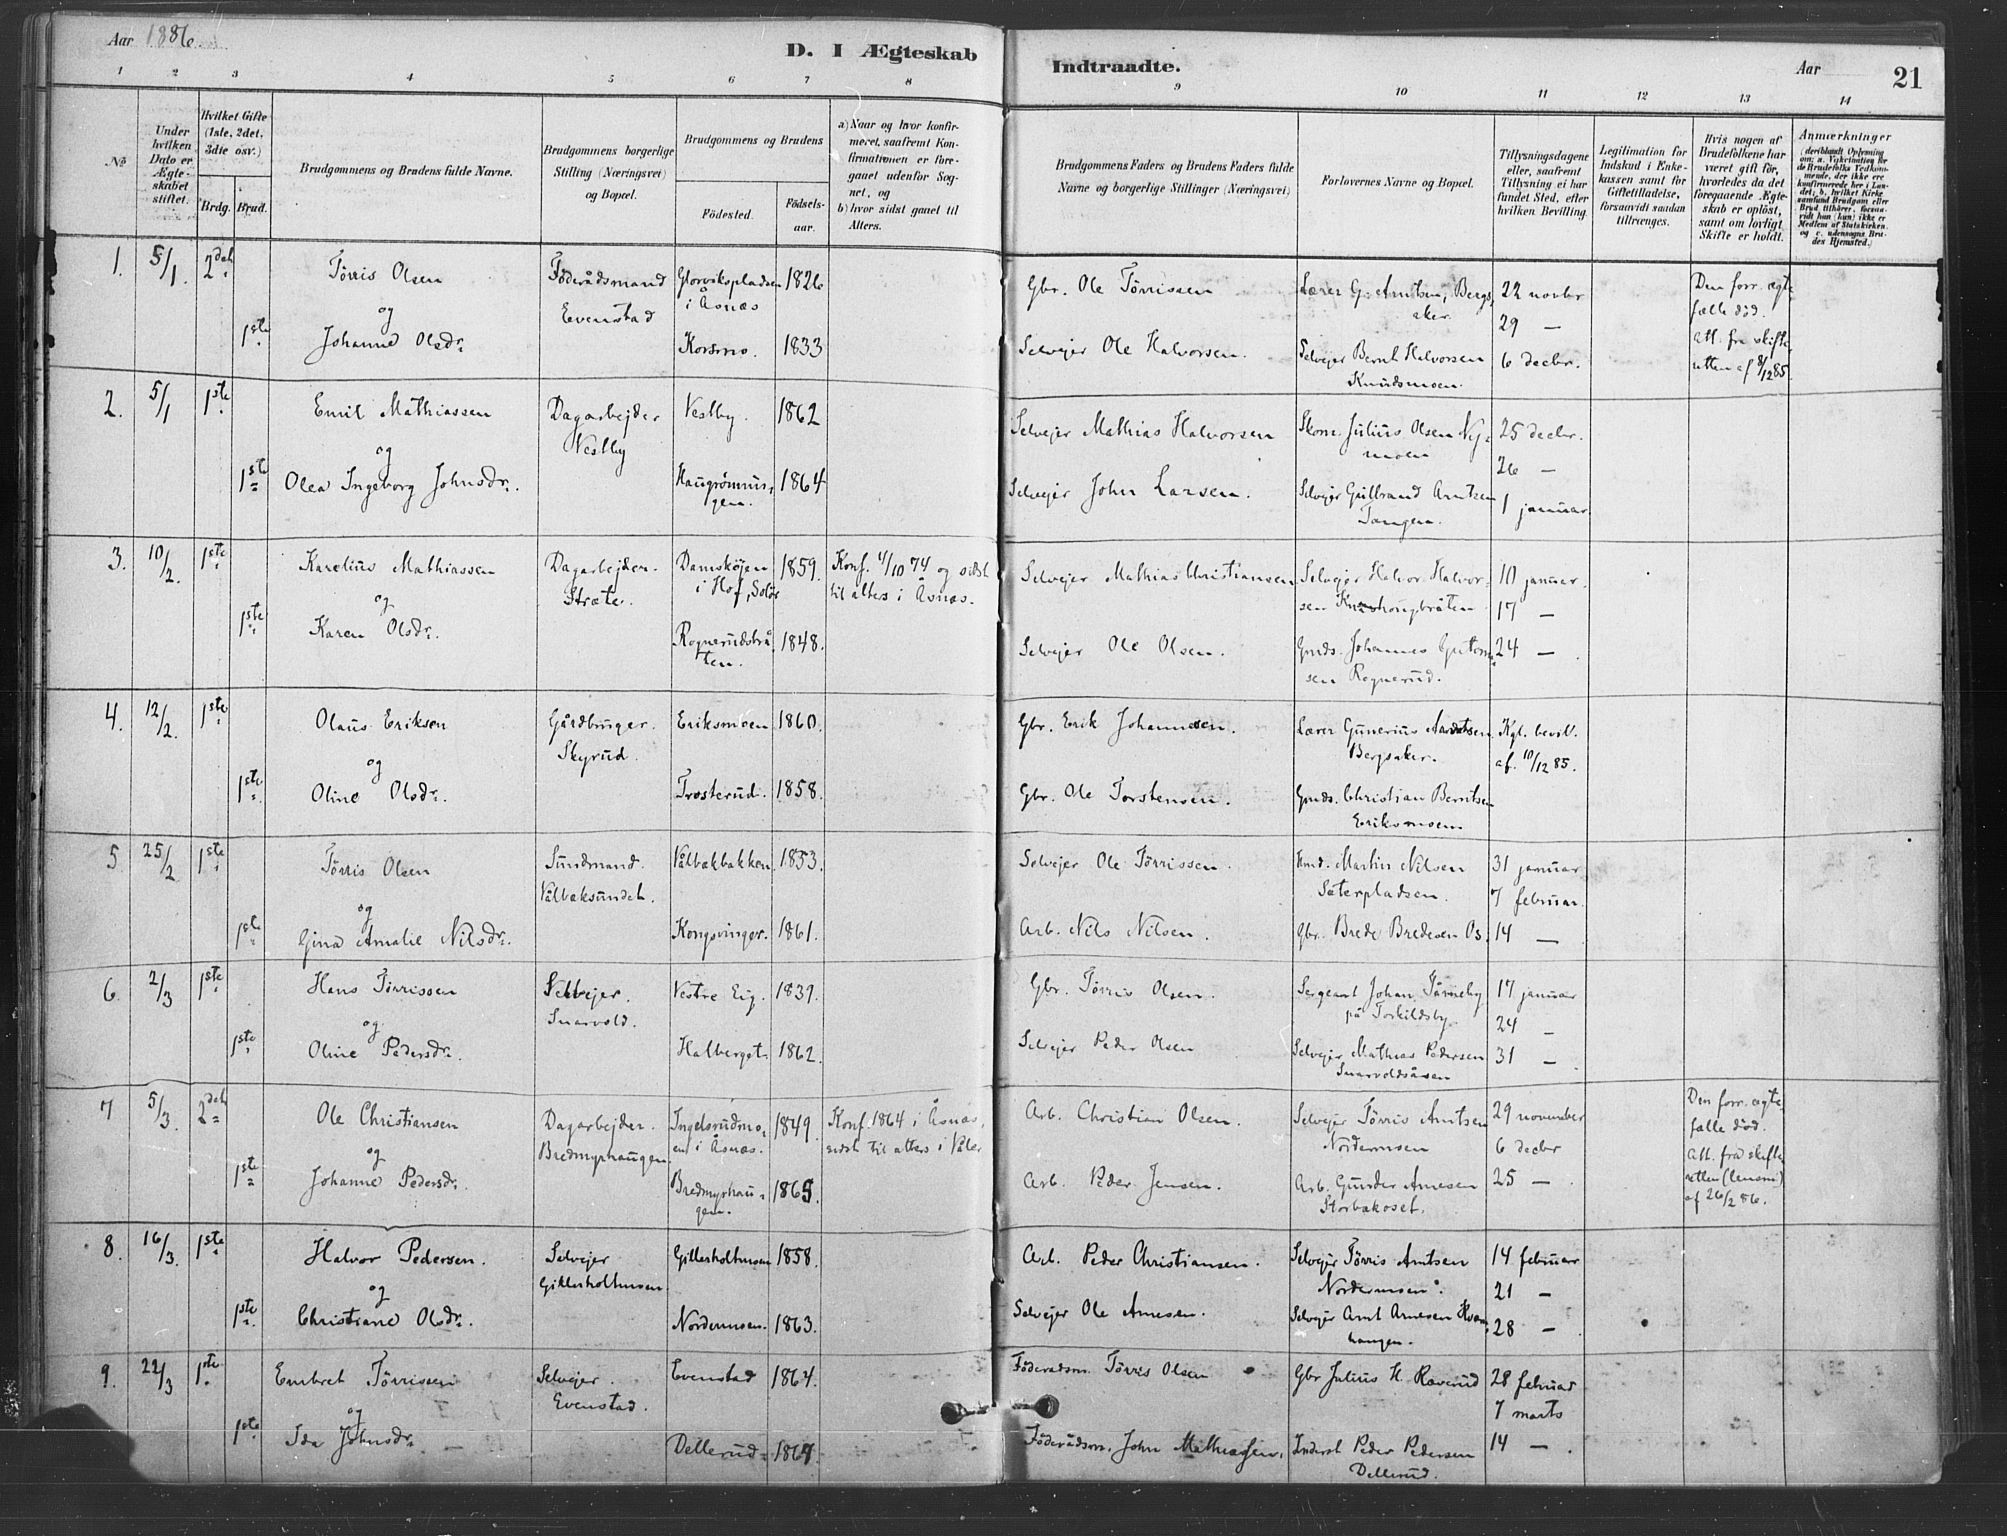 Aar 1886
D. I Ægteskab
Indtraadte.
Aar
21
1 2 3 4 5 6 7 8 9 10 11 12 13 14
No
Under hvilken Dato er Ægteskabet stiftet.
Hvilket Gifte (1ste, 2det, 3die osv.)
Brdg. Brud.
Brudgommens og Brudens fulde Navne.
Brudgommens borgerlige Stilling (Næringsvei) og Bopæl.
Brudgommens og Brudens
Fødested.
Fødselsaar.
a) Naar og hvor konfirmeret, saafremt Konfirmationen er foregaaet udenfor Sognet, og
b) hvor sidst gaaet til Alters.
Brudgommens Faders og Brudens Faders fulde Navne og borgerlige Stillinger (Næringsvei)
Forlovernes Navne og Bopæl.
Tillysningsdagene eller, saafremt Tillysning ei har fundet Sted, efter hvilken Bevilling.
Legitimation for Indskud i Enkekassen samt for Giftetilladelse, forsaavidt saadan tiltrænges.
Hvis nogen af Brudefolkene har været gift før, hvorledes da det foregaaende Ægteskab er opløst, samt om lovligt Skifte er holdt.
Anmærkninger
1. 5/1 2det Tørris Olsen Föderådsmand Glorvikspladsen 1826 Gbr. Ole Tørrissen Lærer G. Arntsen, Bergs 22 novbr Den forr. ægte
og Evenstad i Åsnæs aker. 29 — fælle död.
1ste Johanne Olsdr. Korsmo. 1833 Selvejer Ole Halvorsen. Selvejer Bernt Halvorsen 6 decbr. Att. fra skifte
Knudsmoen. retten af 8/12 85.
2. 5/1 1ste Emil Mathiassen Dagarbejder Vestby. 1862 Selvejer Mathias Halvorsen Skom. Julius Olsen Ny- 25 decbr.
og Vestby moen 26 —
1ste Olea Ingeborg Johnsdr. Haugrømnin- 1864 Selvejer John Larsen. Selvejer Gulbrand Arntsen 1 januar.
gen. Tangen.
3. 10/2. 1ste Karelius Mathiassen Dagarbejder. Damskøjen 1859. Konf. 4/10 74 og sidst Selvejer Mathias Christiansen Selvejer Halvor Halvor- 10 januar.
og Stræte. i Hof, Solør til alters i Åsnæs. 17 —
1ste Karen Olsdr. Rognerudsbrå- 1848. Selvejer Ole Olsen. Gmds. Johannes 24 —
ten. sen Rognerud.
4. 12/2. 1ste Olaus Eriksen Gårdbruger. Eriksmoen 1860. Gbr. Erik Johannesen. Lærer Gunerius Arntsen Kgl. bevil.
og Skyrud. Bergsaker. af 10/12 85.
1ste Oline Olsdr. Trosterud. 1858. Gbr. Ole Torstensen. Gmds. Christian Berntsen
Eriksmoen
5 25/2 1ste Tørris Olsen Sundmand. Vålbækbakken. 1853. Selvejer Ole Tørrissen. Hmd. Martin Nilsen 31 januar
og Vålbæksundet. Sæterpladsen. 7 februar.
1ste Gina Amalie Nilsdr. Kongsvinger. 1861. Arb. Nils Nilsen. Gbr. Brede Bredesen Os. 14 —
6. 2/3 1ste Hans Tørrissen Selvejer. Vestre Eig. 1839. Gbr. Tørris Olsen. Sergeant Johan Tårneby 17 januar
og Snarvold. på Torkildsby 24 —
1ste Oline Pedersdr. Halberget. 1862. Selvejer Peder Olsen Selvejer Mathias Pedersen 31 —
Snarvoldsåsen
7 5/3. 2det Ole Christiansen Dagarbejder. Ingelsrudmo- 1849. Konf. 1864 i Åsnæs, Arb. Christian Olsen. Selvejer Tørris Arntsen 29 november Den forr. ægte-
og Bredmyrhaugen en i Åsnæs. sidst til alters i Våler Nordermoen 6 decbr fælle död.
1ste Johanne Pedersdr. Bredmyrhau- 1865. Arb. Peder Jensen. Arb. Gunder Arnesen 25 — Att. fra skifte
gen. Storbækoset. retten (lensm.)
af 26/2 86.
8. 16/3. 1ste Halvor Pedersen. Selvejer Gillerholtmoen 1858. Arb. Peder Christiansen. Selvejer Tørris Arntsen 14 februar
og Gillerholtmoen Nordermoen. 21 —
1ste Christiane Olsdr. Nordermoen. 1863. Selvejer Ole Arnesen. Selvejer Arnt Arnesen 28 —
haugen.
9. 22/3 1ste Embret Tørrissen Selvejer. Evenstad 1864. Föderådsm. Tørris Olsen Gbr Julius H. Raverud 28 februar
og Evenstad. 7 marts
1ste Ida Johnsdr. Dellerud. 1864. Föderådsm. John Mathiassen, Inderst Peder Pedersen 14 —
Dellerud.